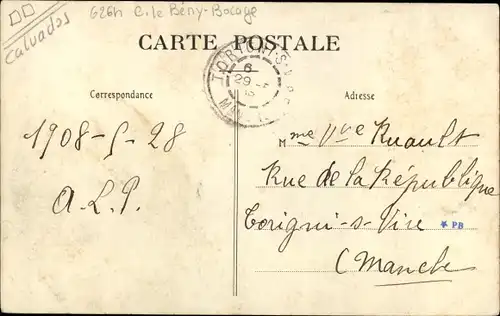 Calvados
626h C. le Bény-Bocage
CARTE POSTALE
TORIGNI-S-VIRE
6
29 - 5
Correspondance
Adresse
1908-5-28
A.L.P.
Mme Vve Ruault
Rue de la République
Torigni-s-Vire
* PB
(Manche